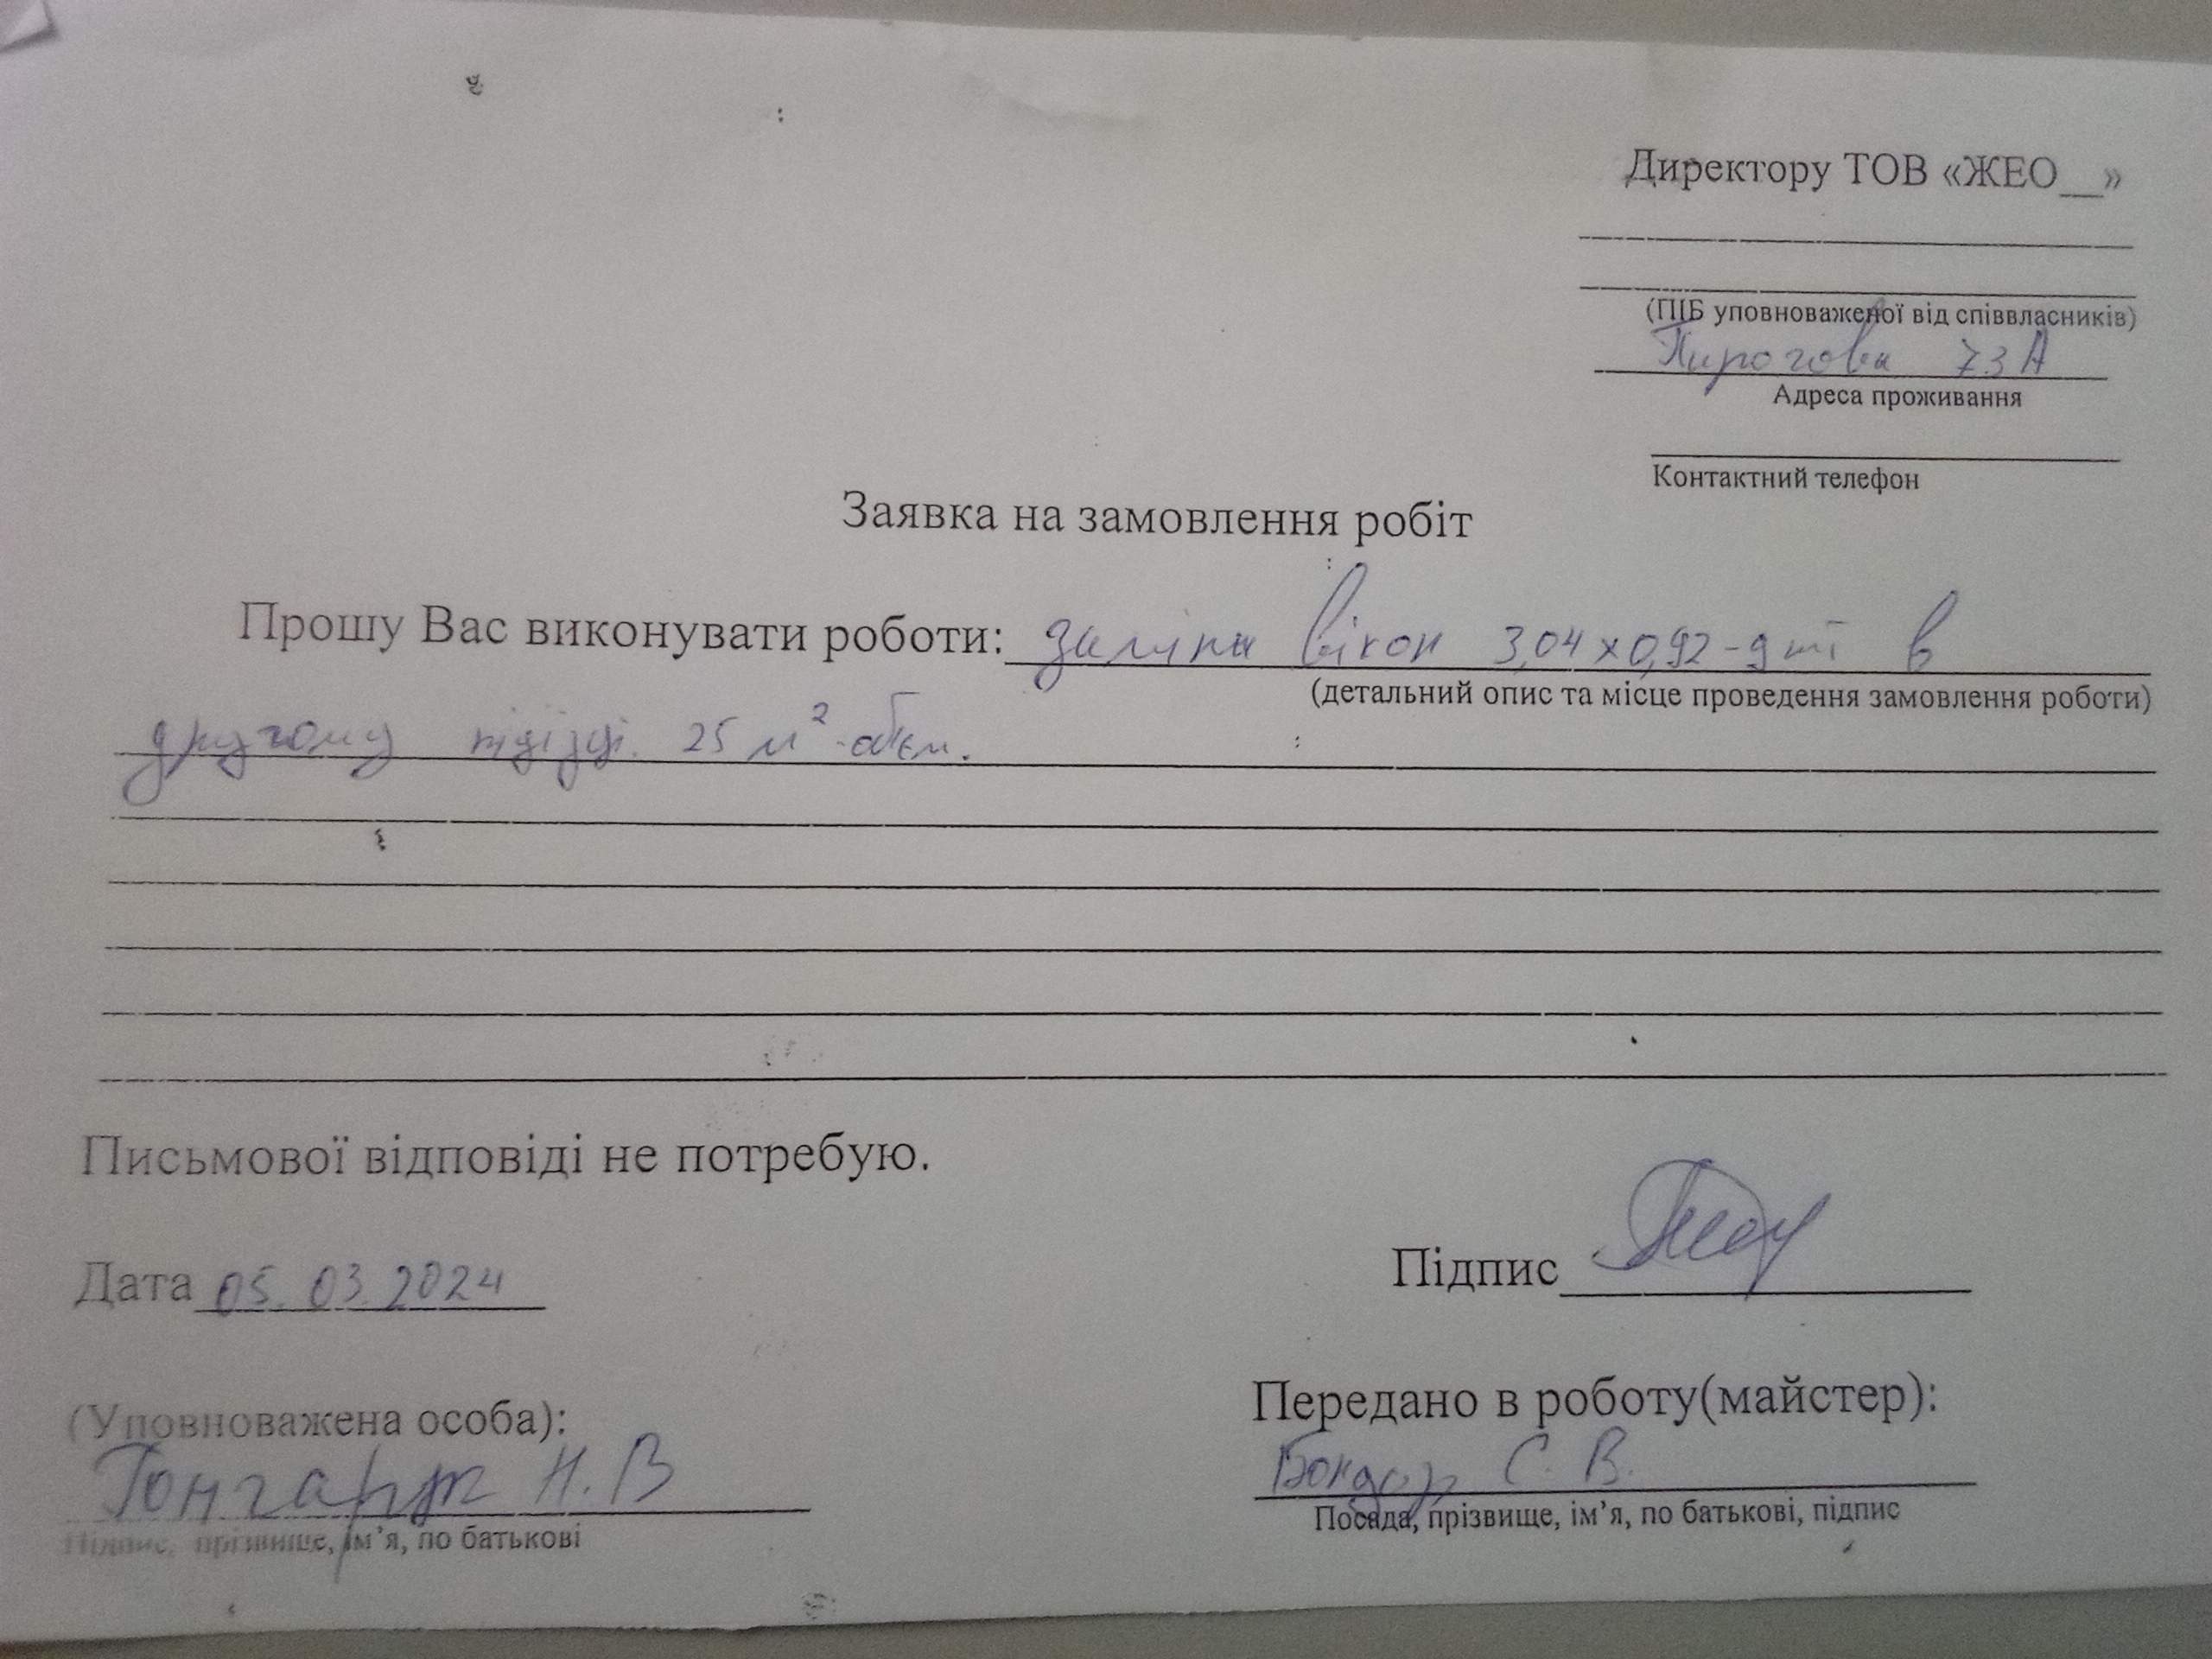 Директору ТОВ «ЖЕО__»
(ПІБ уповноваженої від співвласників)
Пирогова 73А
Адреса проживання
Контактний телефон
Заявка на замовлення робіт
Прошу Вас виконувати роботи: заміна вікон 3,04х0,92-9шт в
(детальний опис та місце проведення замовлення роботи)
другому підїзді. 25 м² - обєм.
Письмової відповіді не потребую.
Дата 05.03.2024
Підпис
(Уповноважена особа):
Передано в роботу(майстер):
Н.В
Бондар С. В.
Підпис, прізвище, ім’я, по батькові
Посада, прізвище, ім’я, по батькові, підпис